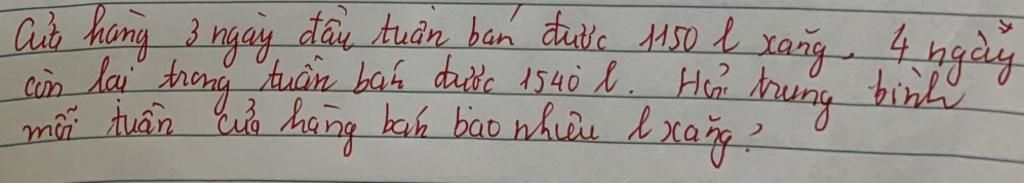 Cửa hàng 3 ngày đầu tuần bán được 1150 l xăng. 4 ngày
còn lại trong tuần bán được 1540 l. Hỏi trung bình
mỗi tuần cửa hàng bán bao nhiêu l xăng?